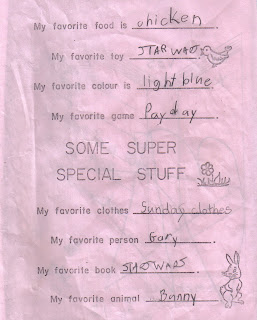 My favorite food is chicken.
My favorite toy STAR WARS.
My favorite colour is light blue.
My favorite game Payday.
SOME SUPER
SPECIAL STUFF
My favorite clothes Sunday clothes
My favorite person Gary.
My favorite book STAR WARS.
My favorite animal Bunny.